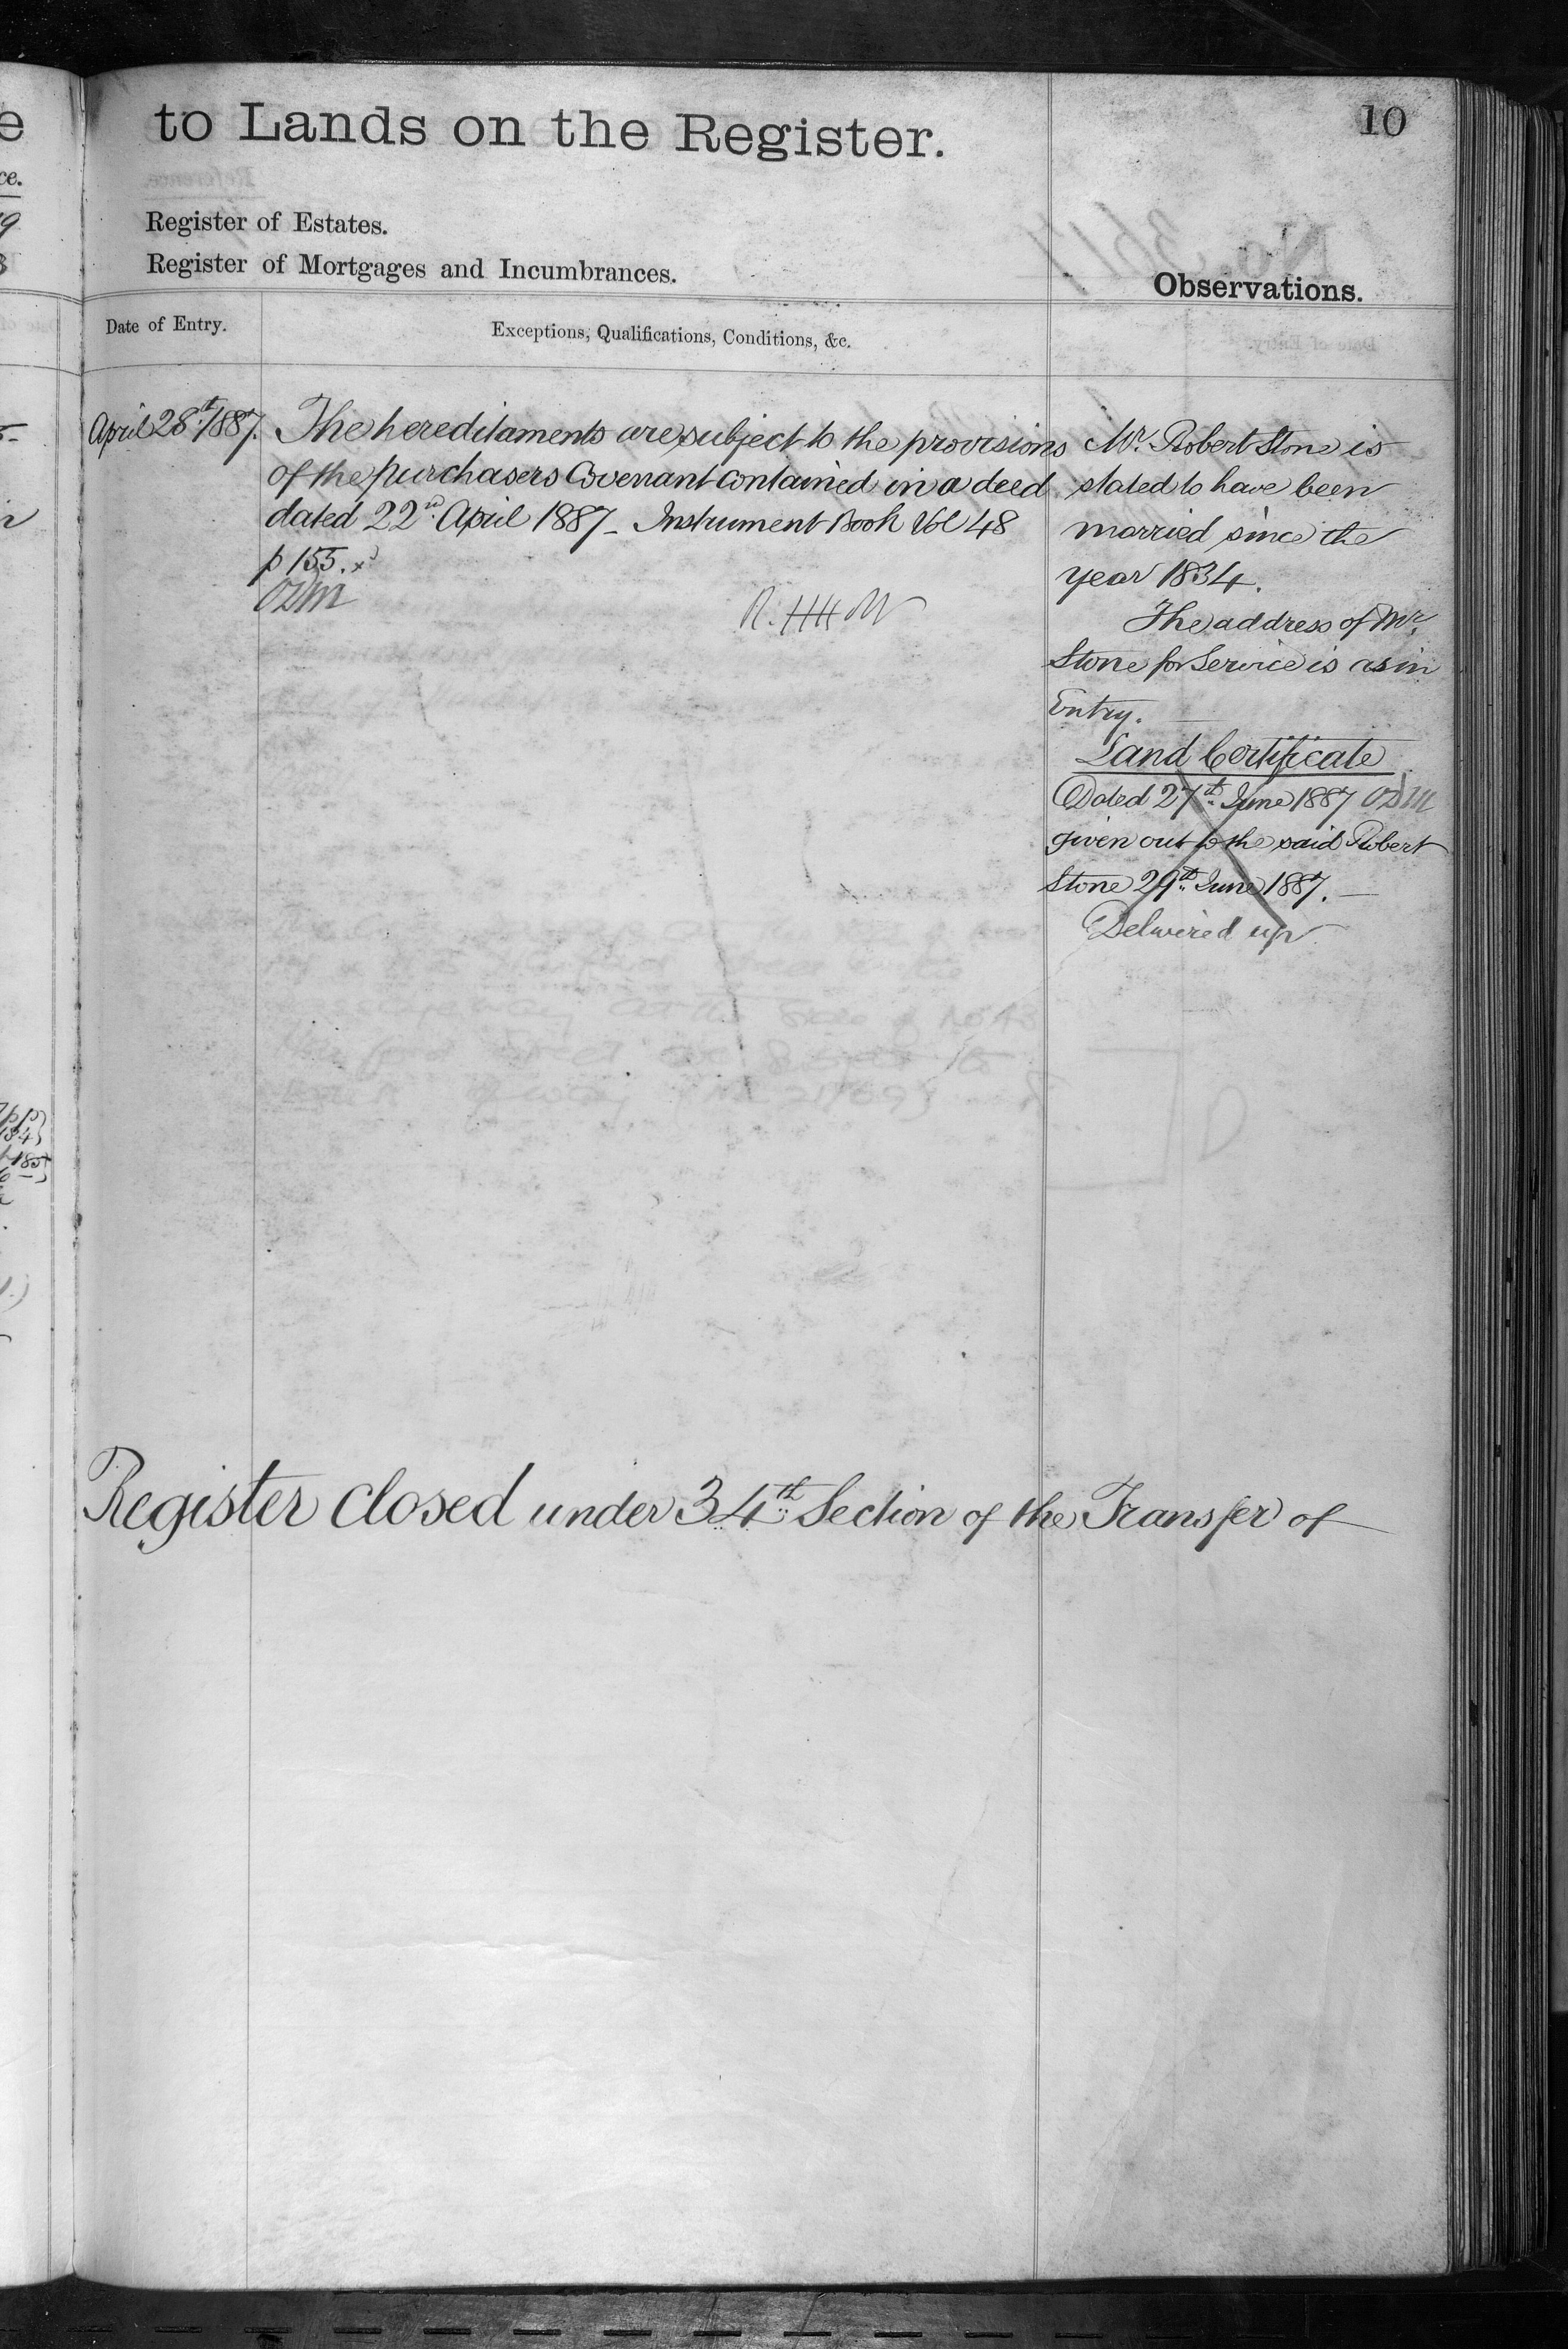 to Lands on the Register.
10
Register of Estates.
Register of Mortgages and Incumbrances.
Observations.
Date of Entry.
Exceptions, Qualifications, Conditions, &c.
April 28th 1887.
The hereditaments are subject to the provisions
of the purchasers Covenant contained in a deed
dated 22nd April 1887 - Instrument Book Vol 48
p 155. x
Mr. Robert Stone is
stated to have been
married since the
year 1834.
The address of Mr.
Stone for Service is as in
Entry.
Land Certificate
Dated 27th June 1887
given out to the said Robert
Stone 29th June 1887. —
Delivered up
Register closed under 34th Section of the Transfer of